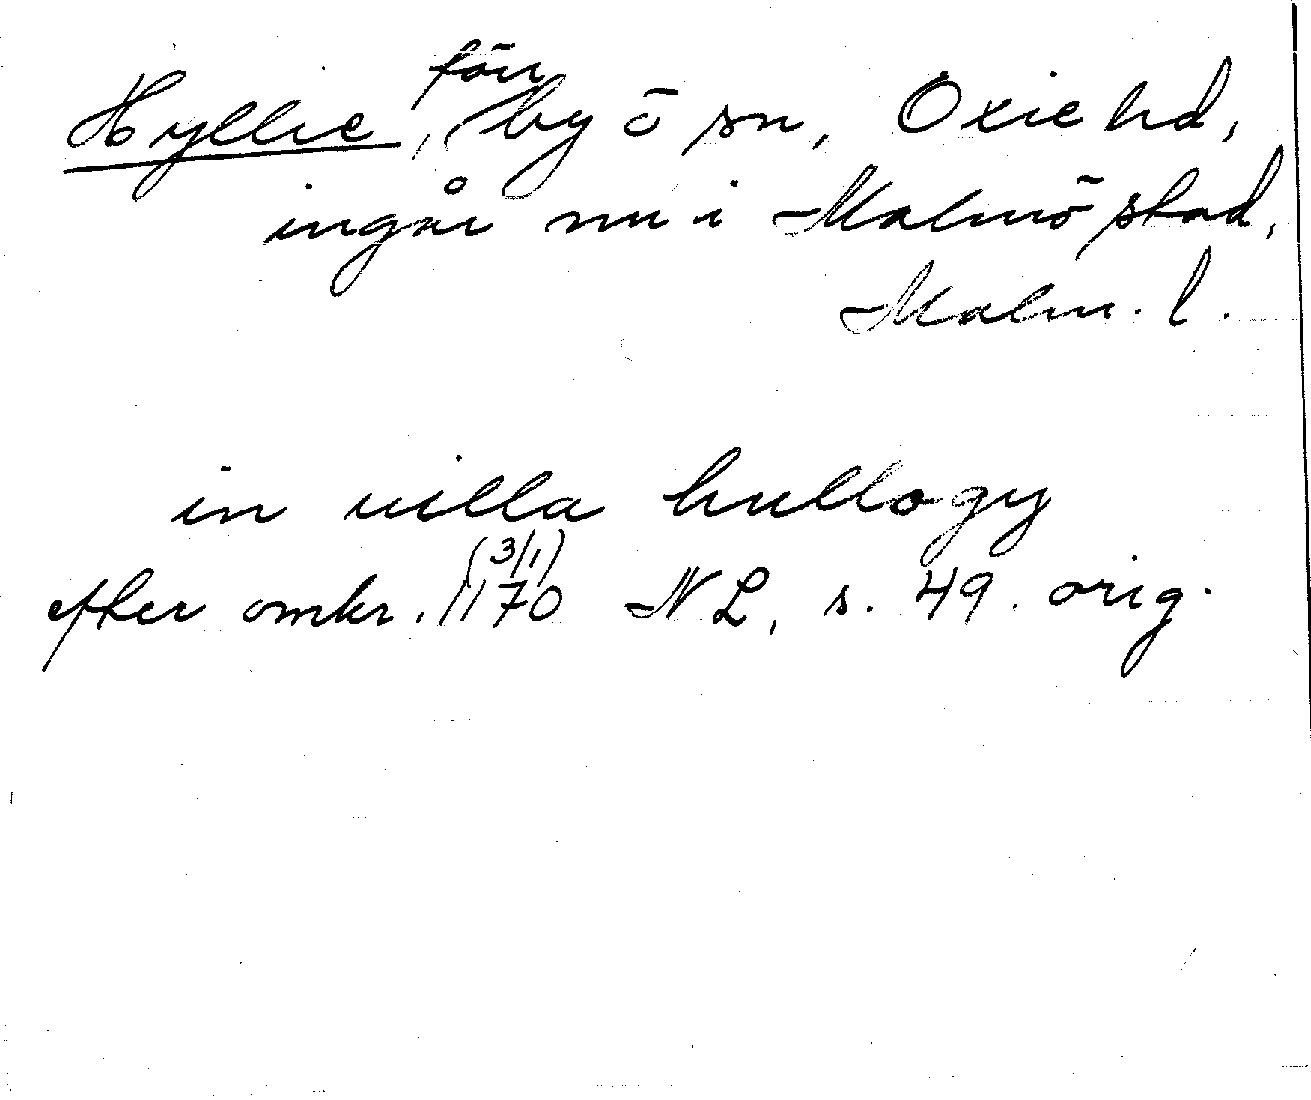 Hyllie, förr by o sn, Oxie hd,
ingår nu i Malmö stad,
Malm. l.
in villa hullogy
(3/1)
efter omkr. 1170 NL, s. 49. orig.